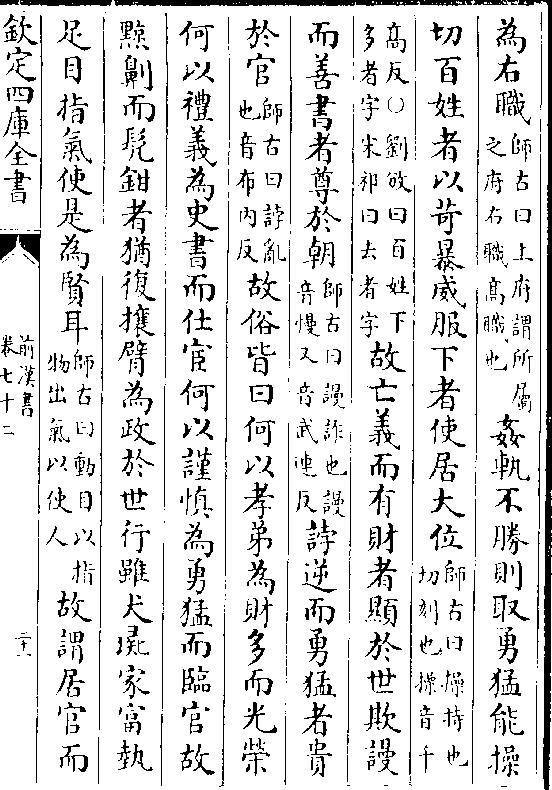 為右職師古曰上府謂所屬之府右職髙職也姦軌不勝則取勇猛能操
切百姓者以苛暴威服下者使居大位師古曰操持也切刻也操音千
髙反○劉攽曰百姓下多者字宋祁曰去者字故亡義而有財者顯於世欺謾
而善書者尊於朝師古曰謾詐也謾音慢又音武連反誖逆而勇猛者貴
於官師古曰誖亂也音布内反故俗皆曰何以孝弟為財多而光榮
何以禮義為史書而仕宦何以謹慎為勇猛而臨官故
黥劓而髠鉗者猶復攘臂為政於世行雖犬彘家富埶
足目指氣使是為賢耳師古曰動目以指物出氣以使人故謂居官而
欽定四庫全書
前漢書
卷七十二
二十一